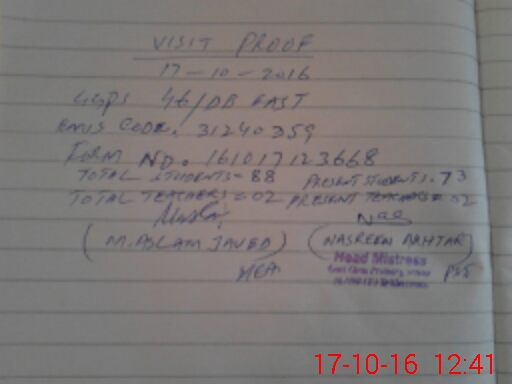 VISIT PROOF
17-10-2016
GGPS 46/DB EAST
EMIS CODE. 31240359
FORM NO. 161017123668
TOTAL STUDENTS = 88 PRESENT STUDENTS. 73
TOTAL TEACHERS = 02 PRESENT TEACHERS = 02
(M. ASLAM JAVED) (NASREEN AKHTAR)
MEA
Head Mistress
17-10-16 12:41